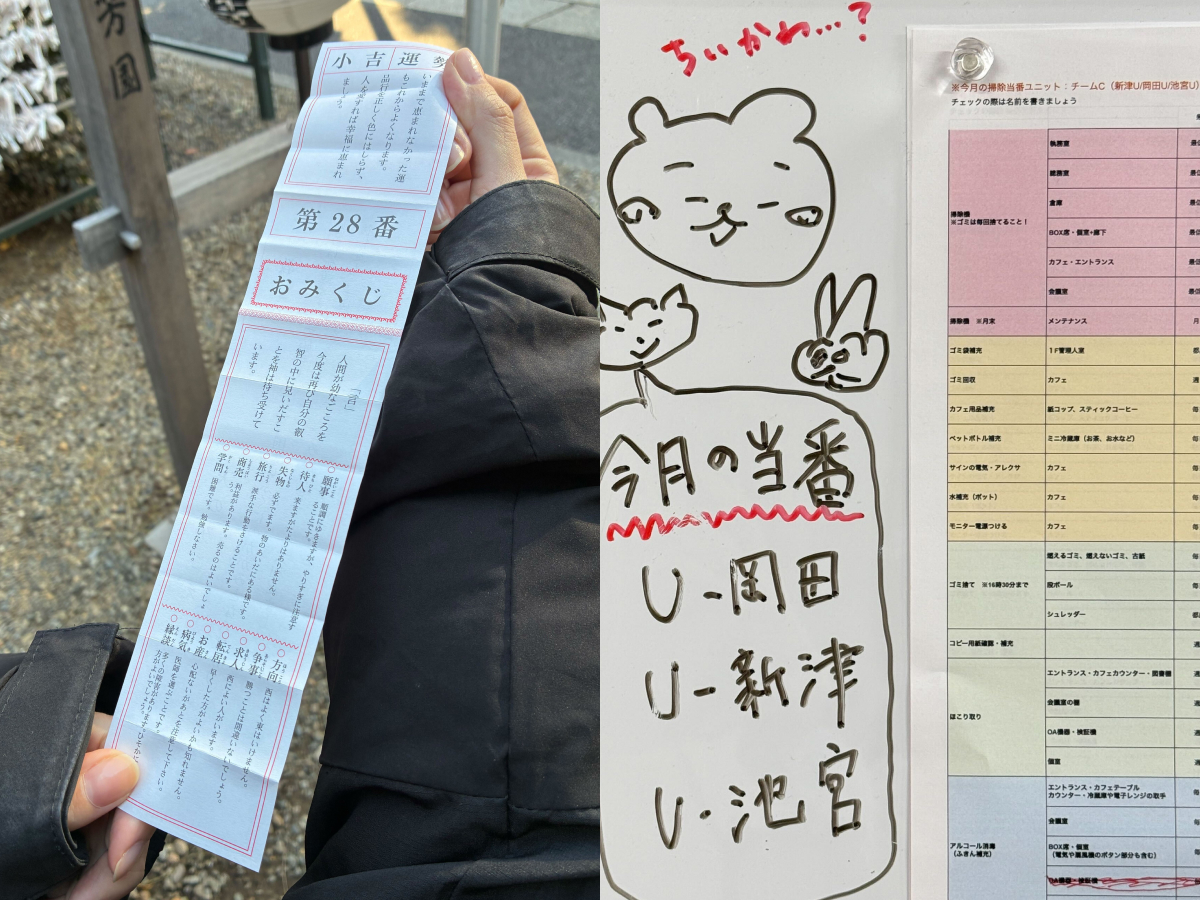 芳園
小吉運勢
いままで恵まれなかった運
もこれからよくなります。
品行を正しく色にはしらず、
人を愛すれば幸福に恵まれ
ましょう。
第28番
おみくじ
「召」
人間が幼なごころを
今度は再び自分の叡
智の中に見いだすこ
とを神は待ち受けて
います。
願事 順調にゆきますが、やりすぎに注意す
ることです。
待人 来ますがたよりはありません。
失物 必ずでます。物のあいだにある様です。
旅行 派手な行動をさけることです。
商売 利益があります。売るのはよいでしょ
う。
学問 困難です。勉強しなさい。
方向 西はよく東はいけません。
争事 勝つことは間違いないでしょう。
求人 西によい人がいます。
転居 早くした方がよいかも知れません。
お産 心配ないがあとを注意して下さい。
病気 医師を選ぶことです。
縁談 多くの障害があります。ひそかに
方がよいでしょう。
ちいかわ…?
今月の当番
U-岡田
U-新津
U・池宮
※今月の掃除当番ユニット:チームC(新津U/岡田U/池宮U)
チェックの際は名前を書きましょう
掃除機
※ゴミは毎回捨てること!
執務室
総務室
倉庫
BOX席・個室+廊下
カフェ・エントランス
会議室
掃除機 ※月末 メンテナンス 月
ゴミ袋補充 1F管理人室
ゴミ回収 カフェ 週
カフェ用品補充 紙コップ、スティックコーヒー 毎
ペットボトル補充 ミニ冷蔵庫(お茶、お水など) 毎
サインの電気・アレクサ カフェ 毎
水補充(ポット) カフェ 毎
モニター電源つける カフェ 毎
ゴミ捨て ※16時30分まで
燃えるゴミ、燃えないゴミ、古紙 毎
段ボール
シュレッダー
コピー用紙確認・補充 週
ほこり取り
エントランス・カフェカウンター・図書棚 週
会議室の棚 週
OA機器・検証機 週
個室 週
アルコール消毒
(ふきん補充)
エントランス・カフェテーブル
カウンター・冷蔵庫や電子レンジの取手 毎
会議室 週
BOX席・個室
(電気や扇風機のボタン部分も含む) 毎
OA機器・検証機